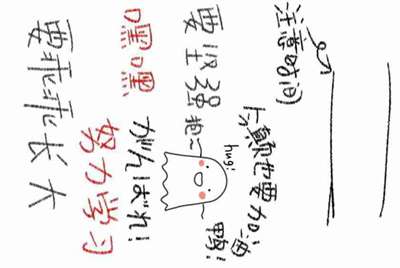 注意时间
大颠也要加油鸭!
hug!
要坚强 抱~
嘿嘿 がんばれ!
努力学习
要乖乖长大